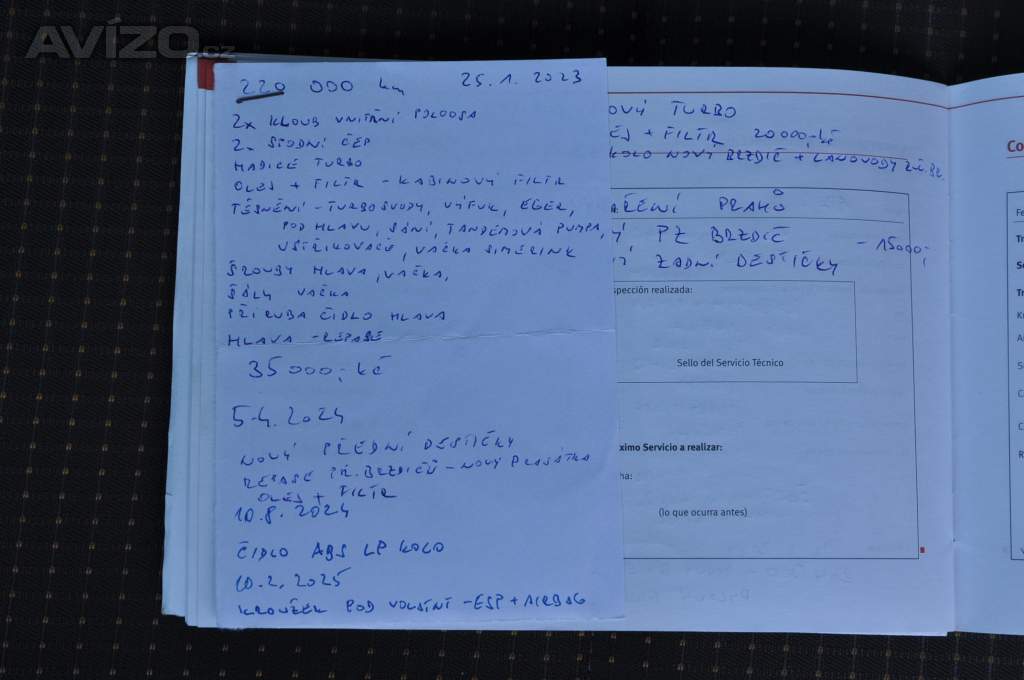 AVÍZO.cz
220 000 km 25.1.2023
2x KLOUB VNITŘNÍ POLOOSA
2x SPODNÍ ČEP
HADICE TURBO
OLEJ + FILTR - KABINOVÝ FILTR
TĚSNĚNÍ - TURBOSVODY, VÝFUK, EGER,
POD HLAVU, SÁNÍ, TANDEMOVÁ PUMPA,
VSTŘIKOVAČŮ, VAČKA SIMERINK
ŠROUBY HLAVA, VAČKA,
ŠÁLY VAČKA
PŘÍRUBA ČIDLO HLAVA
HLAVA - REPASE
35 000,- kč
5.4.2024
NOVÝ PŘEDNÍ DESTIČKY
REPASE PŘ. BRZDIČŮ - NOVÝ PLASÁTKA
OLEJ + FILTR
10.8.2024
ČIDLO ABS LP KOLO
10.2.2025
KROUŽEK POD VOLANTNÍ - ESP + AIRBAG
OVÝ TURBO
EJ + FILTR 20000,- kč
KOLO NOVÝ BRZDIČ + LANOVODY
AŘENÍ PRAHŮ
PZ BRZDIČ - 15000,-
ZADNÍ DESTIČKY
spección realizada:
Sello del Servicio Técnico
ximo Servicio a realizar:
ha:
(lo que ocurra antes)
Co
Fe